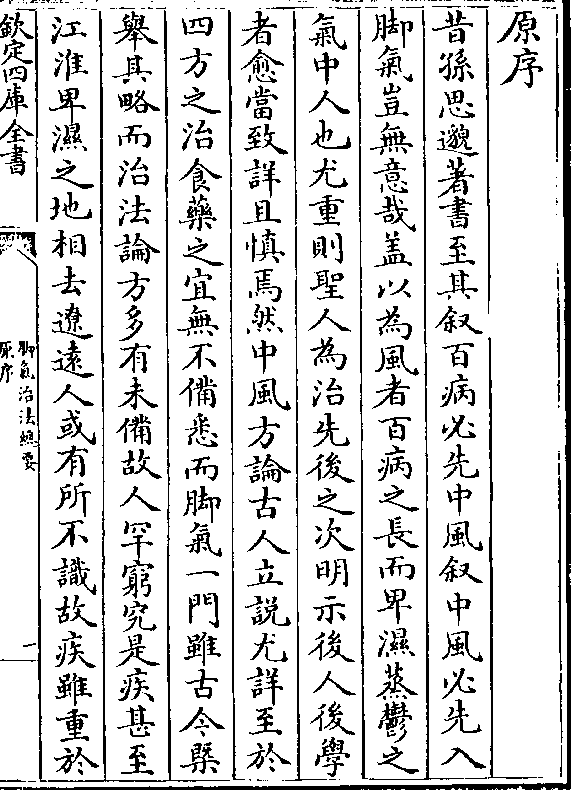 原序
昔孫思邈著書至其叙百病必先中風叙中風必先入
脚氣豈無意哉盖以為風者百病之長而卑濕蒸鬱之
氣中人也尤重則聖人為治先後之次明示後人後學
者愈當致詳且慎焉然中風方論古人立説尤詳至於
四方之治食藥之宜無不備悉而脚氣一門雖古今槩
舉其略而治法論方多有未備故人罕窮究是疾甚至
江淮卑濕之地相去遼遠人或有所不識故疾雖重於
欽定四庫全書
脚氣治法總要
原序
一